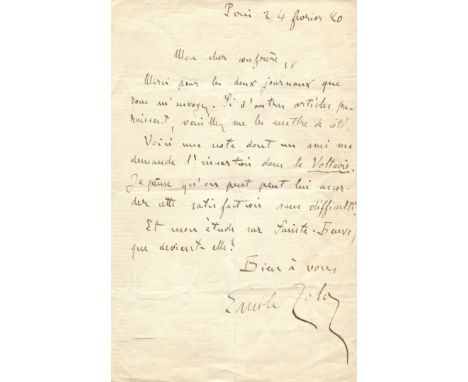 Paris 24 février 80
Mon cher confrère,
Merci pour les deux journaux que
vous m'envoyez. Si d'autres articles pa-
raissent, veuillez me les mettre de côté.
Voici une note dont un ami me
demande l'insertion dans le Voltaire.
Je pense qu'on peut peut lui accor-
der cette satisfaction sans difficulté.
Et mon étude sur Sainte-Beuve,
que devient-elle?
Bien à vous
Emile Zola